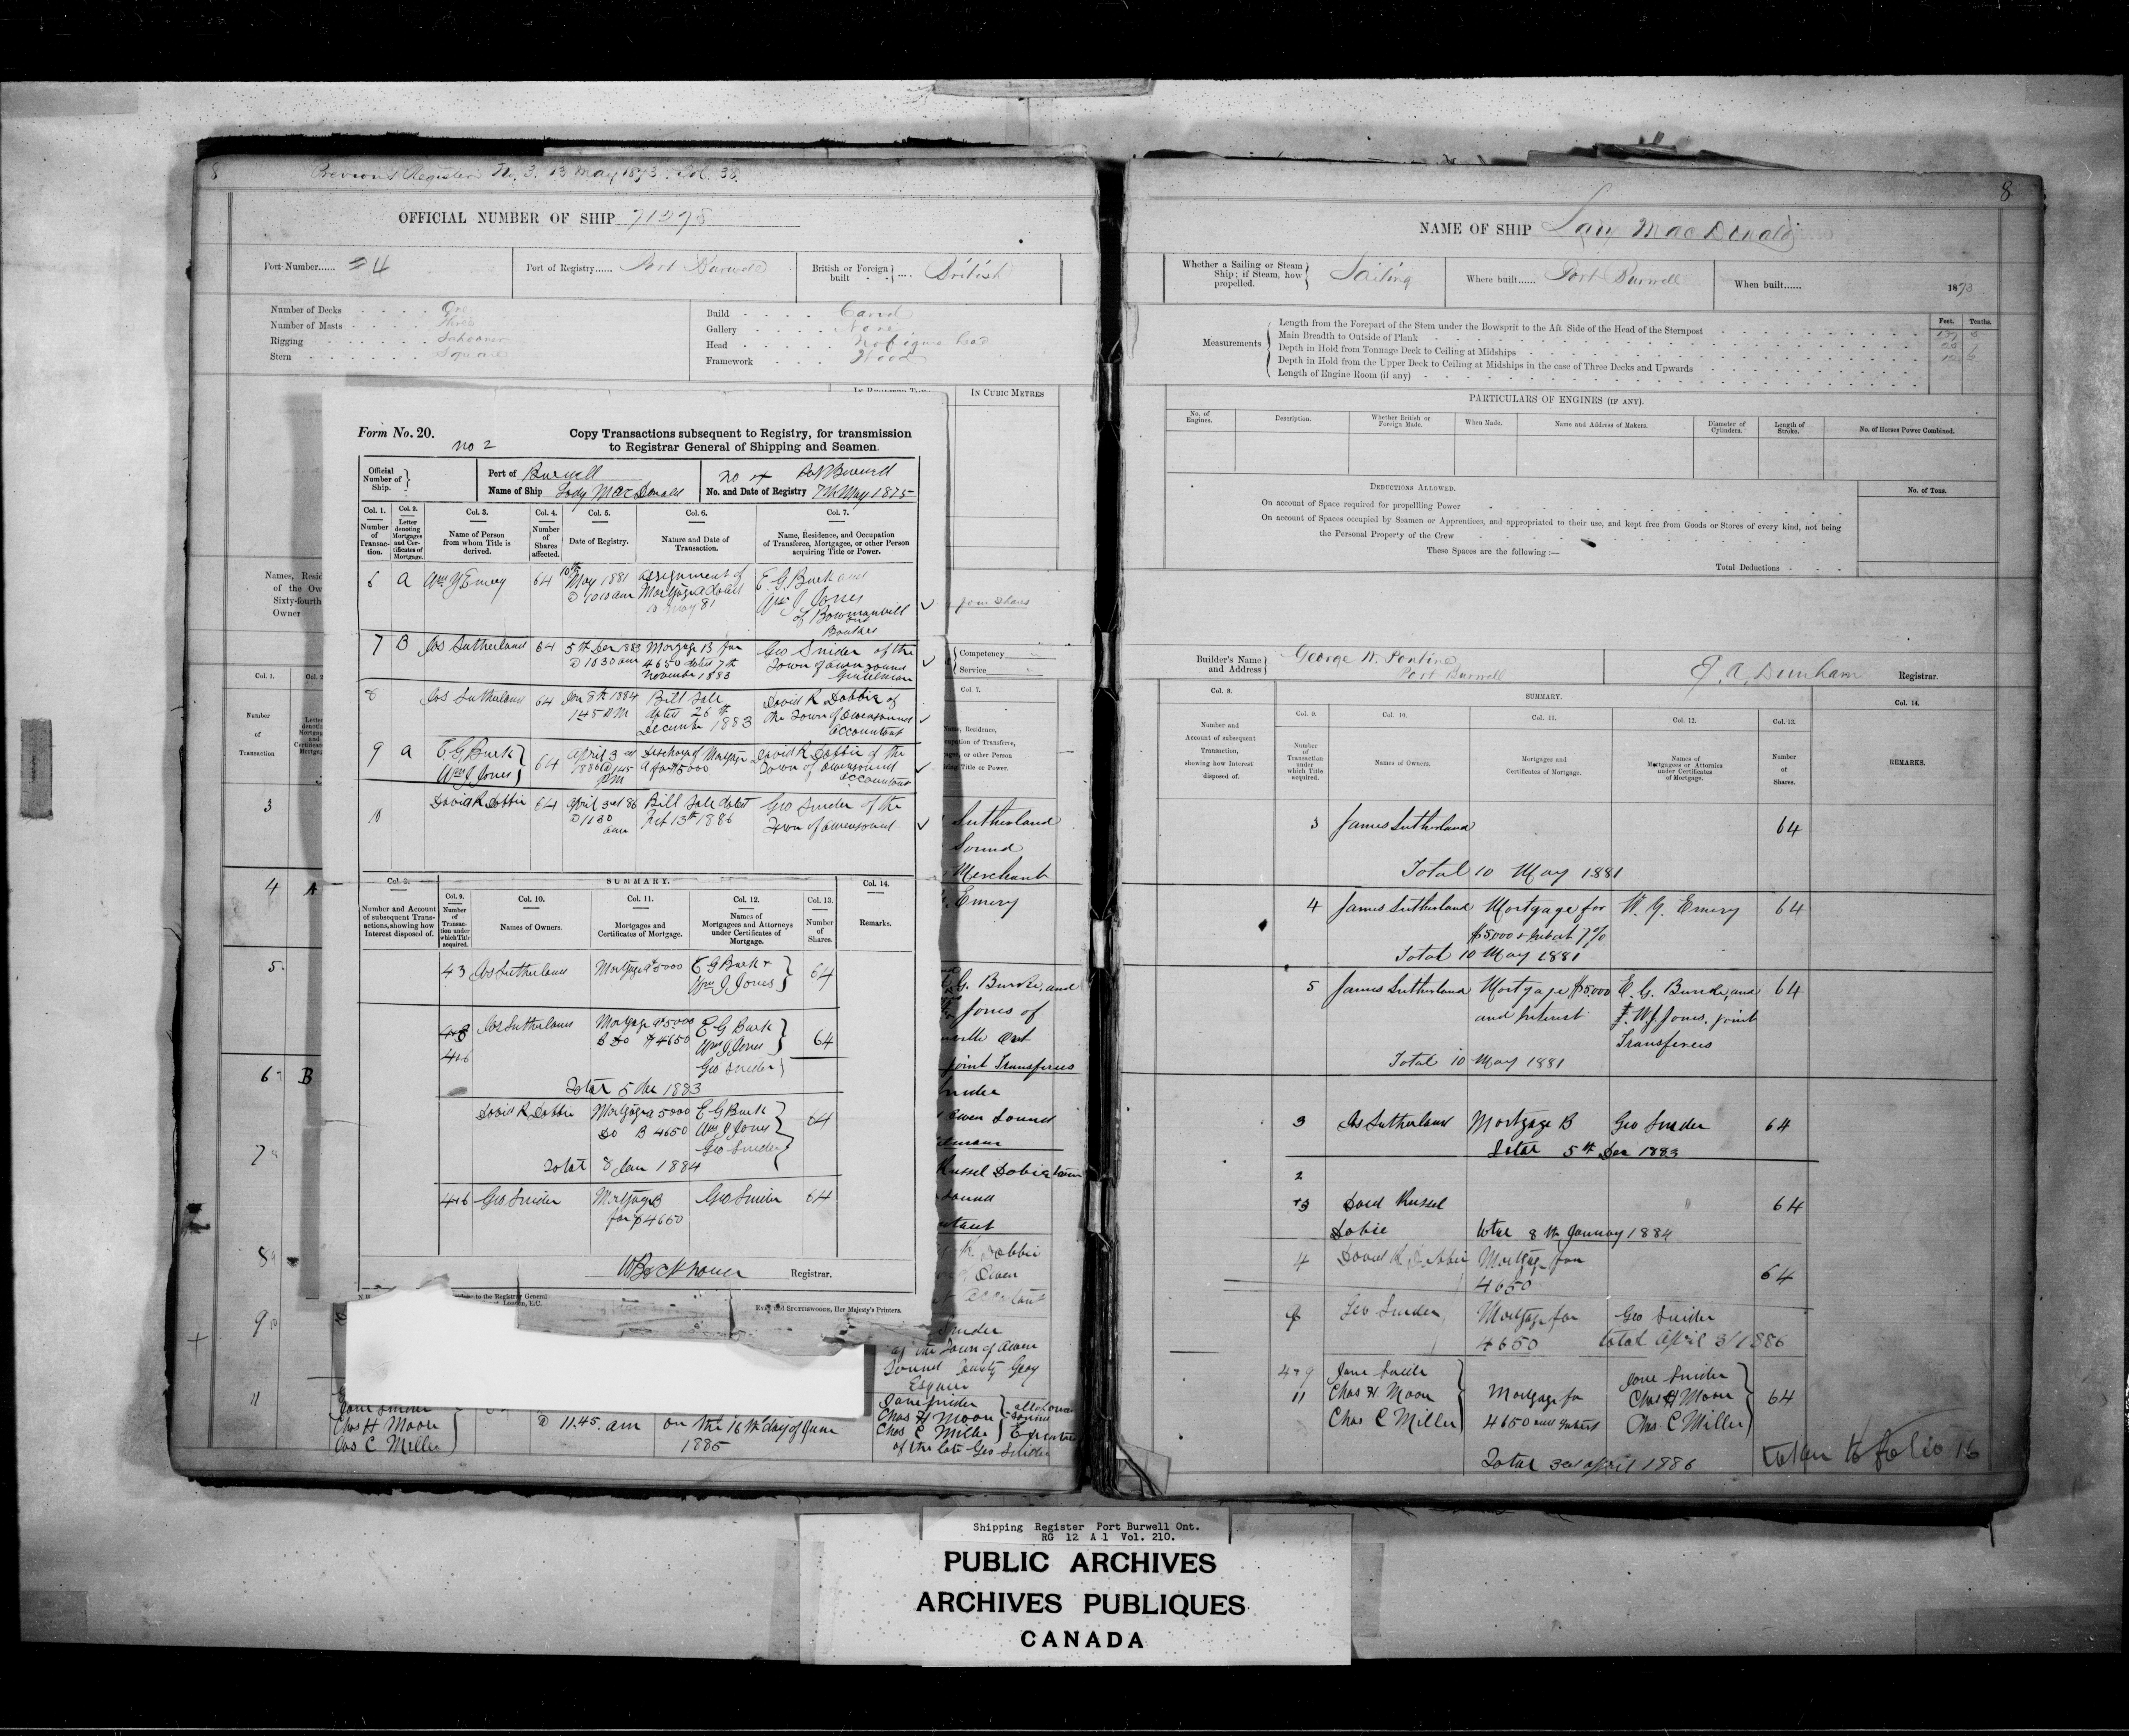 8
Previous Register No. 3. 13 May 1873. Fol. 38.
OFFICIAL NUMBER OF SHIP 71278
Port Number...... 4
Port of Registry...... Port Burwell
British or Foreign built .... British
Number of Decks One
Number of Masts Three
Rigging Schooner
Stern Square
Build Carvel
Gallery None
Head No figure head
Framework Wood
IN CUBIC METRES
Names, Resid
of the Ow
Sixty-fourth
Owner
four shares
Competency
Service
Col. 1.
Col. 7.
Number
of
Transaction
Name, Residence,
or other Person
Title or Power.
3
Sutherland
Sound
Merchant
4 A
Emery
5
E. G. Burke, and
Jones of
ville Ont
joint Transferees
6 B
Snider
Owen Sound
7
Russel Dobie
Sound
8
K Dobbie
Owen
9
Snider
of the Town of Owen
Sound County Grey
Esquire
11
Jane Snider
Chas H Moon
Jas C Miller
@ 11.45. am
on the 16th day of June
1885
Jane Snider
Chas H Moon
Chas C Miller
all of Owen
Sound
Executors
of the late Geo Snider
Form No. 20.
no 2
Copy Transactions subsequent to Registry, for transmission
to Registrar General of Shipping and Seamen.
Official
Number of
Ship.
Port of Burwell
Name of Ship Lady Mac Donald
no 4 Port Burwell
No. and Date of Registry 7th May 1875
Col. 1.
Number
of
Transac-
tion.
Col. 2.
Letter
denoting
Mortgages
and Cer-
tificates of
Mortgage.
Col. 3.
Name of Person
from whom Title is
derived.
Col. 4.
Number
of
Shares
affected.
Col. 5.
Date of Registry.
Col. 6.
Nature and Date of
Transaction.
Col. 7.
Name, Residence, and Occupation
of Transferee, Mortgagee, or other Person
acquiring Title or Power.
6 A Wm Y Emery 64
10th
May 1881
@ 10 10 am
assignment of
Mortgage A dated
10 May 81
E. G. Burk and
Wm J Jones
of Bowmanvill
Ont
7 B Jas Sutherland 64
5th Dec 1883
@ 10 30 am
Mortgage B for
4650 dated 7th
November 1883
Geo Snider of the
Town of Owensound
Gentelman
8 Jas Sutherland 64
Jan 8th 1884
1 45 PM
Bill Sale
dated 26th
December 1883
David R Dobbie of
the Town of Owensound
accountant
9 A
E G Burk
Wm J Jones
64
April 3rd
1886 @ 1 45
PM
Discharge of Mortgage
A for $5000
David R Dobbie of the
Town of Owensound
accountant
10 David R Dobbie 64
April 3rd 86
@ 11 30
am
Bill Sale dated
Feb 13th 1886
Geo Snider of the
Town of Owensound
SUMMARY.
Col. 8.
Number and Account
of subsequent Trans-
actions, showing how
Interest disposed of.
Col. 9.
Number
of
Transac-
tion under
which Title
acquired.
Col. 10.
Names of Owners.
Col. 11.
Mortgages and
Certificates of Mortgage.
Col. 12.
Names of
Mortgagees and Attorneys
under Certificates of
Mortgage.
Col. 13.
Number
of
Shares.
Col. 14.
Remarks.
43 Jas Sutherland Mortgage A 5000
E G Burk +
Wm J Jones
64
Jas Sutherland
Mortgage A 5000
B Do $4650
E G Burk
Wm J Jones
Geo Snider
64
Total 5 Dec 1883
David R Dobbie
Mortgage A 5000
Do B 4650
E G Burk
Wm J Jones
Geo Snider
64
Total 8 Jan 1884
4+6 Geo Snider
Mortgage B
for $4650
Geo Snider 64
Registrar.
to the Registrar General
London, E.C.
EYRE and SPOTTISWOODE, Her Majesty's Printers.
8
NAME OF SHIP Lady MacDonald
Whether a Sailing or Steam
Ship; if Steam, how
propelled.
Sailing
Where built...... Port Burwell
When built...... 1873
Measurements
Feet. Tenths.
Length from the Forepart of the Stem under the Bowsprit to the Aft Side of the Head of the Sternpost
Main Breadth to Outside of Plank
Depth in Hold from Tonnage Deck to Ceiling at Midships
Depth in Hold from the Upper Deck to Ceiling at Midships in the case of Three Decks and Upwards
Length of Engine Room (if any)
PARTICULARS OF ENGINES (IF ANY).
No. of
Engines.
Description.
Whether British or
Foreign Made.
When Made.
Name and Address of Makers.
Diameter of
Cylinders.
Length of
Stroke.
No. of Horses Power Combined.
DEDUCTIONS ALLOWED.
No. of Tons.
On account of Space required for propelling Power
On account of Spaces occupied by Seamen or Apprentices, and appropriated to their use, and kept free from Goods or Stores of every kind, not being
the Personal Property of the Crew
These Spaces are the following:—
Total Deductions
Builder's Name
and Address
George W. Pontine
Port Burwell
J. A. Dunham Registrar.
Col. 8.
Number and
Account of subsequent
Transaction,
showing how Interest
disposed of.
SUMMARY.
Col. 9.
Number
of
Transaction
under
which Title
acquired.
Col. 10.
Names of Owners.
Col. 11.
Mortgages and
Certificates of Mortgage.
Col. 12.
Names of
Mortgagees or Attornies
under Certificates
of Mortgage.
Col. 13.
Number
of
Shares.
Col. 14.
REMARKS.
3 James Sutherland 64
Total 10 May 1881
4 James Sutherland Mortgage for W. Y. Emery 64
$5000 & Interest 7%
Total 10 May 1881
5 James Sutherland Mortgage $5000 E. G. Burke, and 64
and Interest W. J. Jones, joint
Transferees
Total 10 May 1881
3 Jas Sutherland Mortgage B Geo Snider 64
Total 5th Dec 1883
2
+3 David Russel 64
Dobie total 8th January 1884
4 David R Dobbie Mortgage for
4650 64
9 Geo Snider Mortgage for Geo Snider
4650 total April 3/1886
4+9
11
Jane Snider
Chas H Moon
Chas C Miller
Mortgage for
4650 and Interest
Jane Snider
Chas H Moon
Chas C Miller
64
Total 3rd April 1886
taken to folio 16
Shipping Register Port Burwell Ont.
RG 12 A 1 Vol. 210.
PUBLIC ARCHIVES
ARCHIVES PUBLIQUES
CANADA